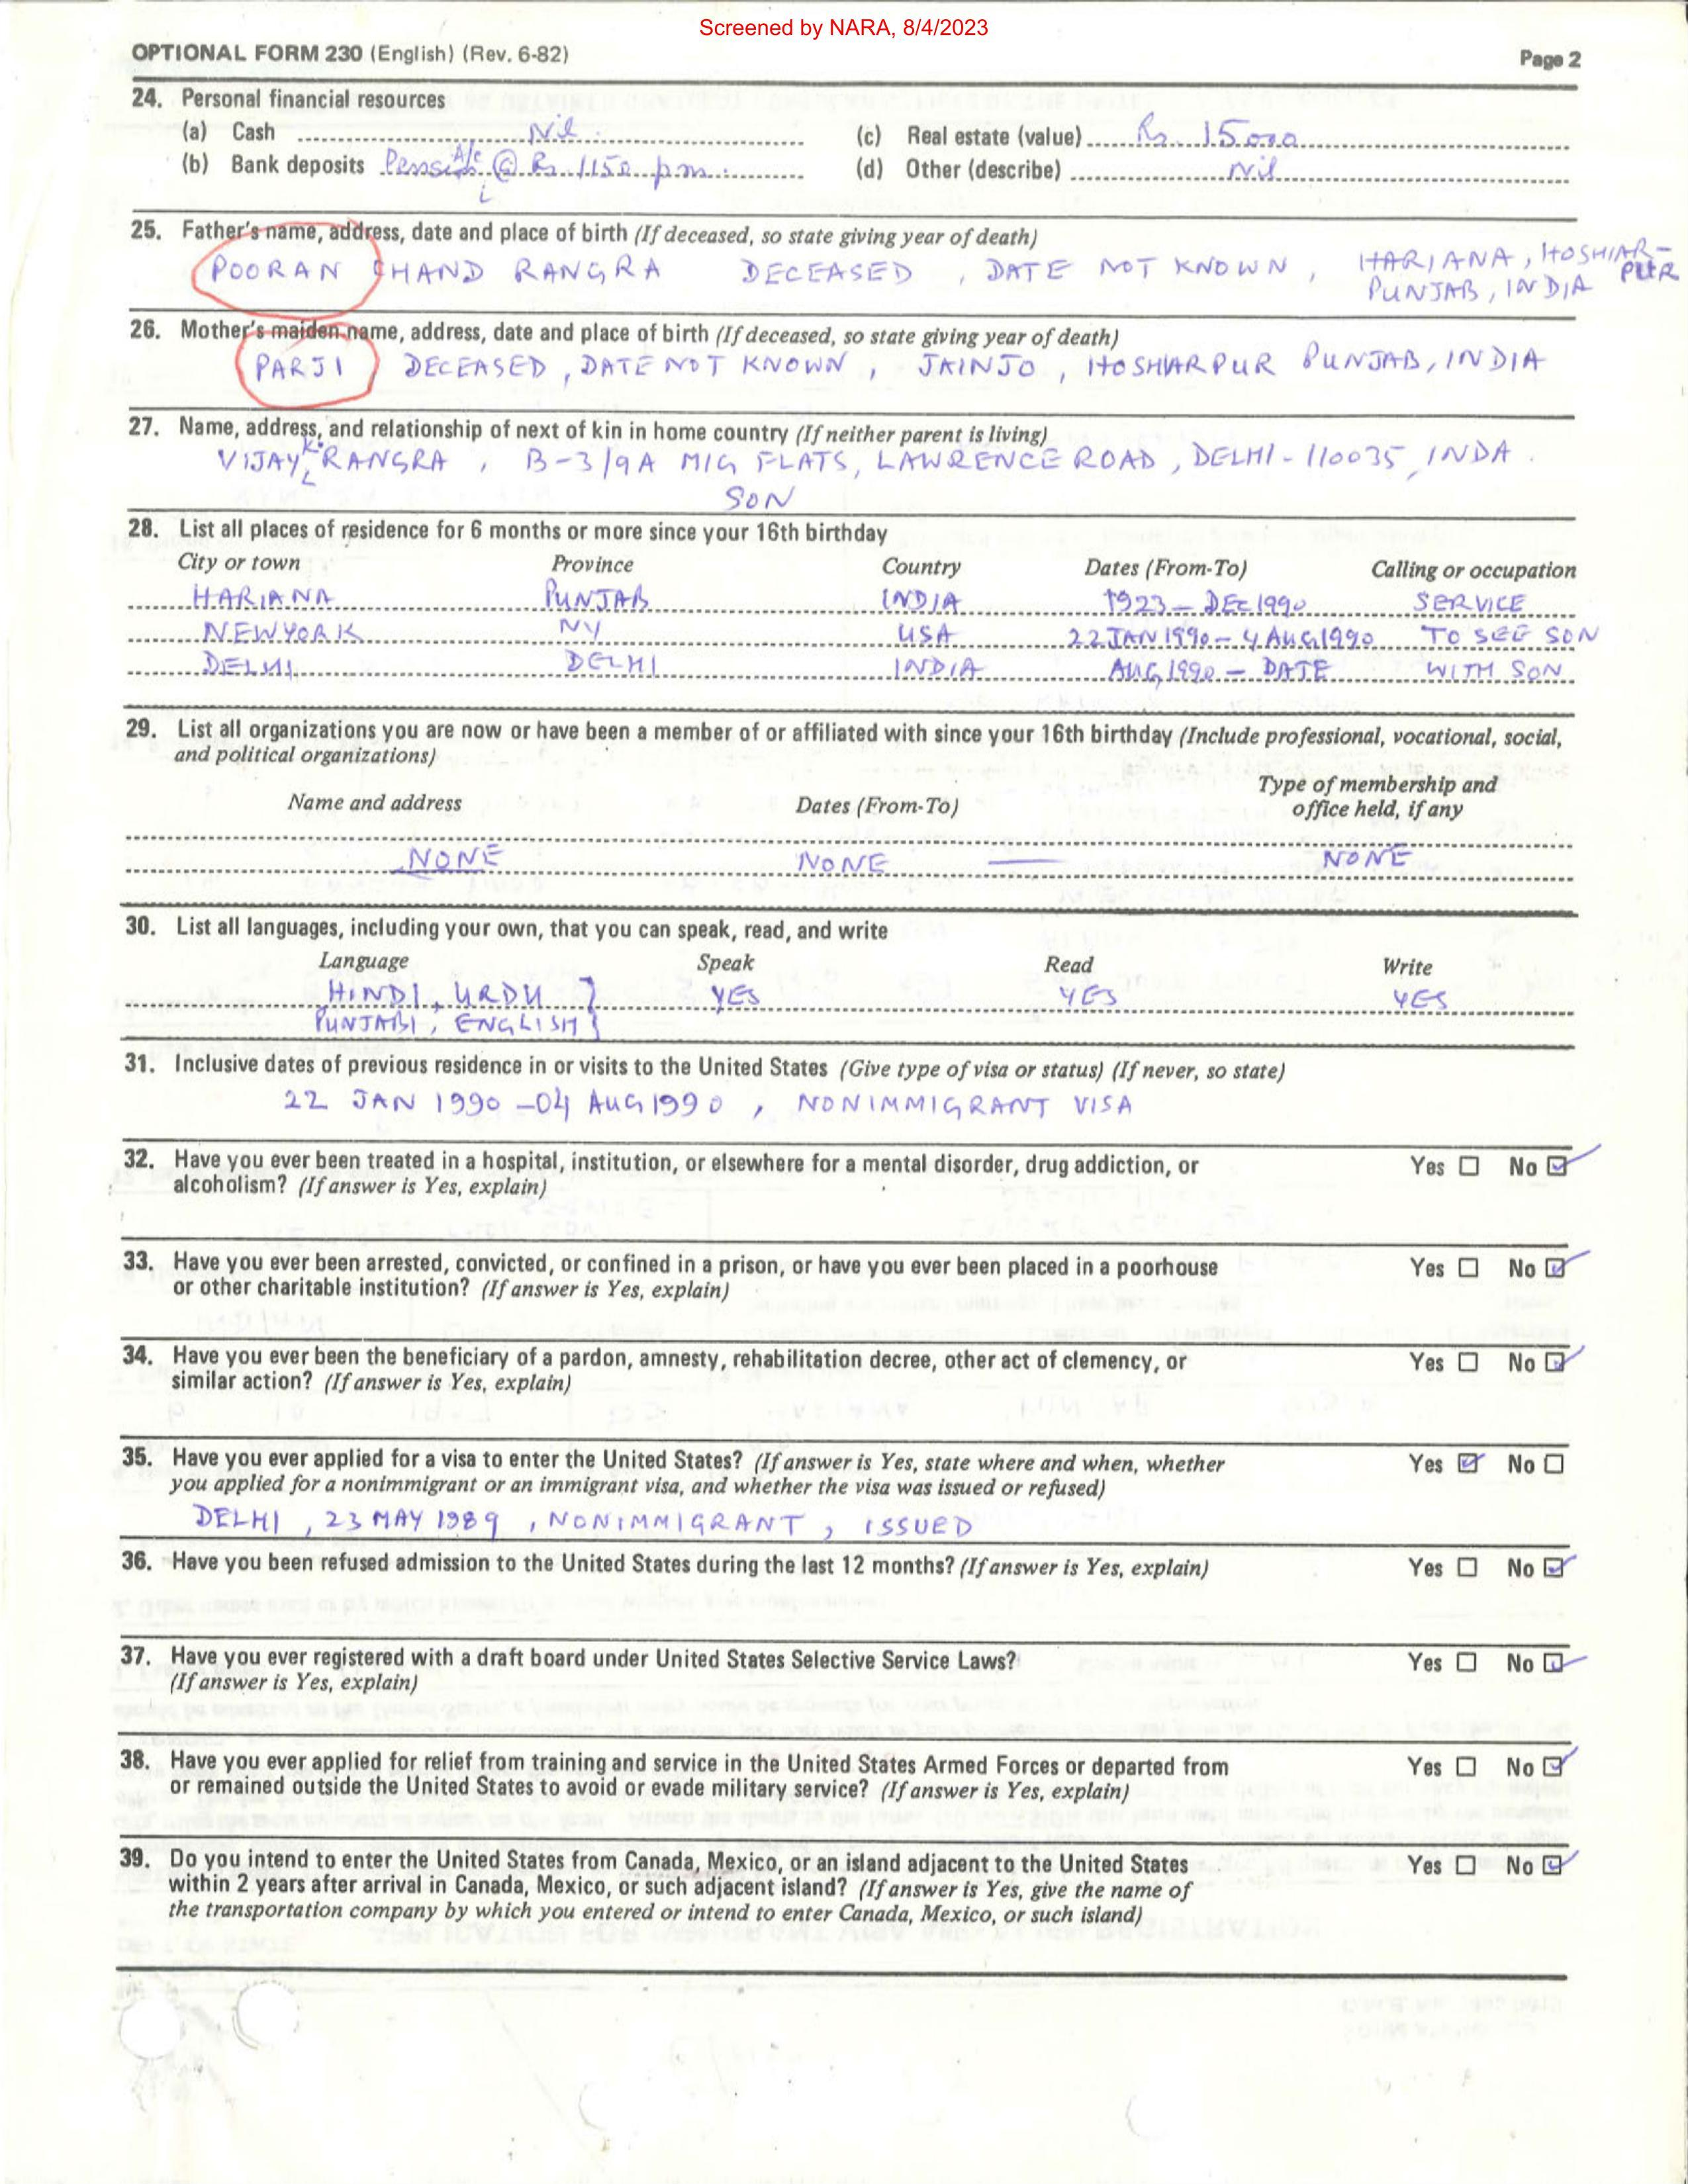 Screened by NARA, 8/4/2023
OPTIONAL FORM 230 (English) (Rev. 6-82) Page 2
24. Personal financial resources
(a) Cash Nil (c) Real estate (value) Rs. 15000
(b) Bank deposits A/c @ Rs 1150 p.m. (d) Other (describe) Nil
25. Father's name, address, date and place of birth (If deceased, so state giving year of death)
POORAN CHAND RANGRA DECEASED , DATE NOT KNOWN , HARIANA, HOSHIAR-PUR
PUNJAB, INDIA
26. Mother's maiden name, address, date and place of birth (If deceased, so state giving year of death)
PARJI DECEASED, DATE NOT KNOWN , JAINJO , HOSHIARPUR PUNJAB, INDIA
27. Name, address, and relationship of next of kin in home country (If neither parent is living)
VIJAY K. RANGRA , B-3/9A MIG FLATS, LAWRENCE ROAD, DELHI-110035, INDA.
SON
28. List all places of residence for 6 months or more since your 16th birthday
City or town Province Country Dates (From-To) Calling or occupation
HARIANA PUNJAB INDIA 1923 - DEC 1990 SERVICE
NEWYORK NY USA 22 JAN 1990 - 4 AUG 1990 TO SEE SON
DELHI DELHI INDIA AUG 1990 - DATE WITH SON
29. List all organizations you are now or have been a member of or affiliated with since your 16th birthday (Include professional, vocational, social,
and political organizations)
Name and address Dates (From-To) Type of membership and
office held, if any
NONE NONE — NONE
30. List all languages, including your own, that you can speak, read, and write
Language Speak Read Write
HINDI, URDU } YES YES YES
PUNJABI, ENGLISH
31. Inclusive dates of previous residence in or visits to the United States (Give type of visa or status) (If never, so state)
22 JAN 1990 -04 AUG 1990 , NONIMMIGRANT VISA
32. Have you ever been treated in a hospital, institution, or elsewhere for a mental disorder, drug addiction, or Yes ☐ No ☑
alcoholism? (If answer is Yes, explain)
33. Have you ever been arrested, convicted, or confined in a prison, or have you ever been placed in a poorhouse Yes ☐ No ☑
or other charitable institution? (If answer is Yes, explain)
34. Have you ever been the beneficiary of a pardon, amnesty, rehabilitation decree, other act of clemency, or Yes ☐ No ☑
similar action? (If answer is Yes, explain)
35. Have you ever applied for a visa to enter the United States? (If answer is Yes, state where and when, whether Yes ☑ No ☐
you applied for a nonimmigrant or an immigrant visa, and whether the visa was issued or refused)
DELHI , 23 MAY 1989 , NONIMMIGRANT , ISSUED
36. Have you been refused admission to the United States during the last 12 months? (If answer is Yes, explain) Yes ☐ No ☑
37. Have you ever registered with a draft board under United States Selective Service Laws? Yes ☐ No ☑
(If answer is Yes, explain)
38. Have you ever applied for relief from training and service in the United States Armed Forces or departed from Yes ☐ No ☑
or remained outside the United States to avoid or evade military service? (If answer is Yes, explain)
39. Do you intend to enter the United States from Canada, Mexico, or an island adjacent to the United States Yes ☐ No ☑
within 2 years after arrival in Canada, Mexico, or such adjacent island? (If answer is Yes, give the name of
the transportation company by which you entered or intend to enter Canada, Mexico, or such island)